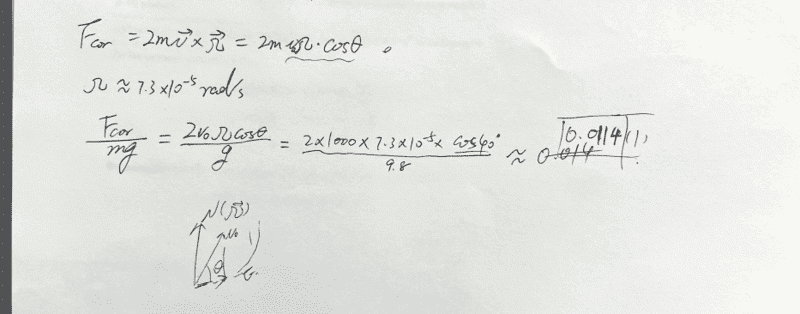 F_cor = 2m v⃗ × Ω⃗ = 2m v₀Ω · cosθ 。
Ω ≈ 7.3 × 10⁻⁵ rad/s
F_cor/mg = 2v₀Ωcosθ/g = 2×1000×7.3×10⁻⁵×cos40°/9.8 ≈ 0.0114
N(Ω⃗)
v₀
θ